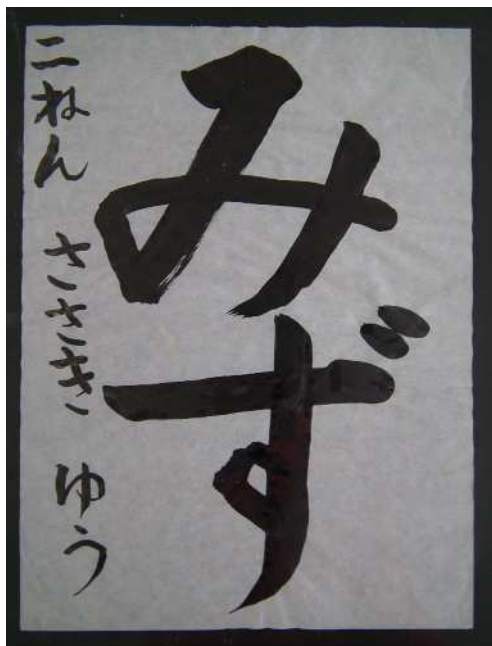 みず
二ねん ささき ゆう